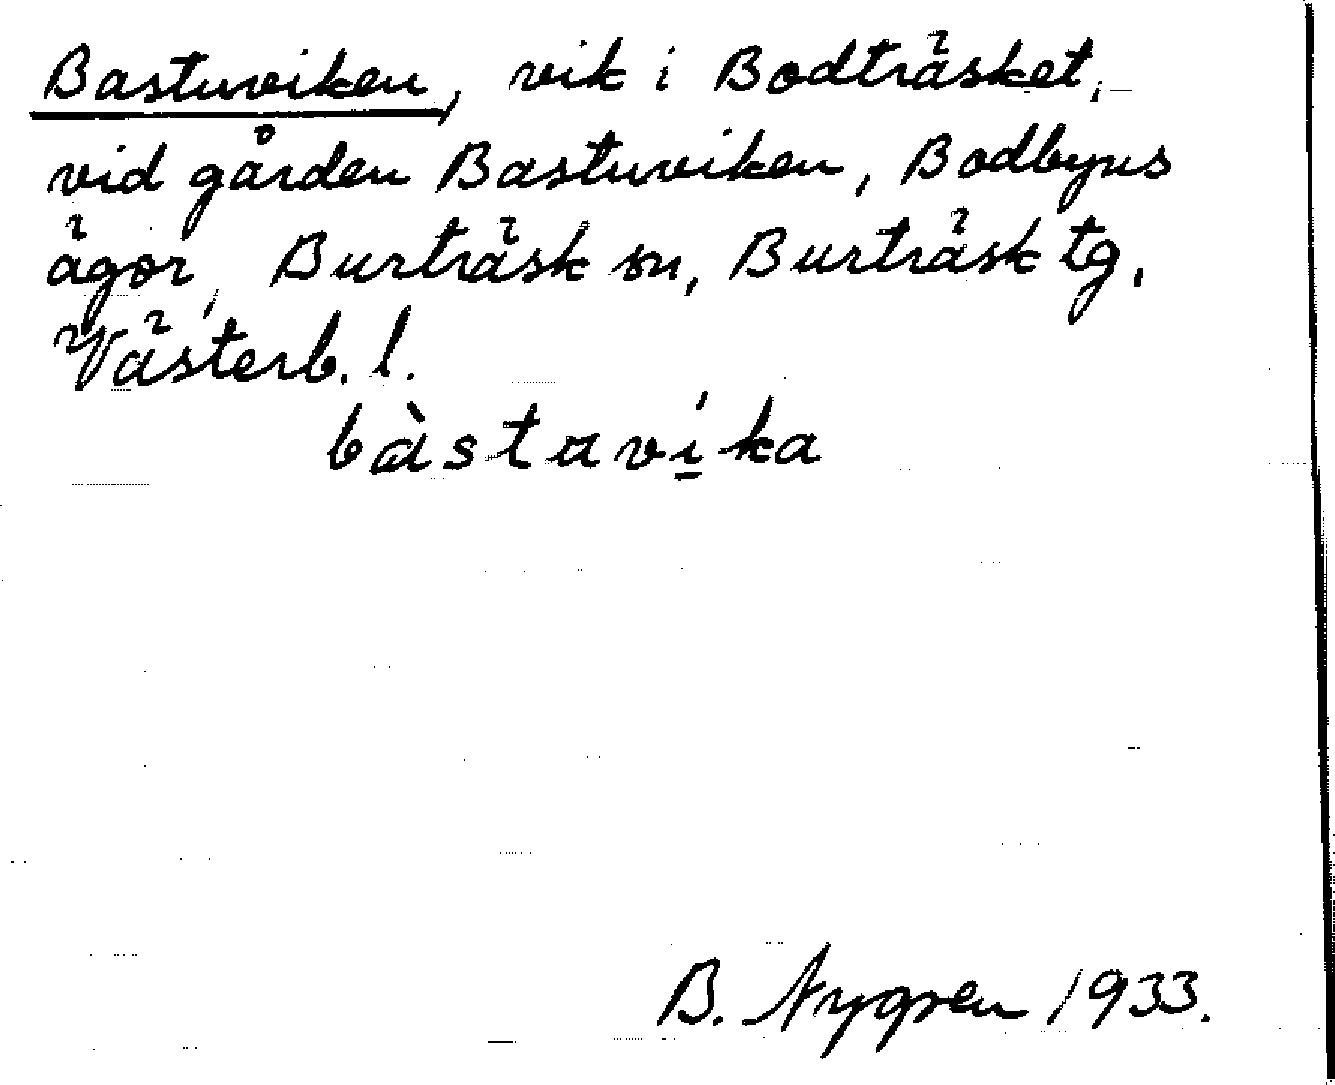 Bastuviken, vik i Bodträsket,
vid gården Bastuviken, Bodbyns
ägor, Burträsk sn, Burträsk tg,
Västerb. l.
bàstaví̲ka
B. Nygren 1933.